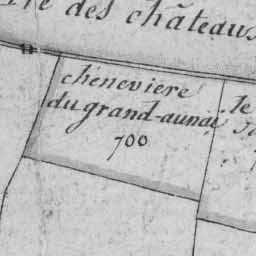 des châteaux
chenevière
du grand-aunai
700
le